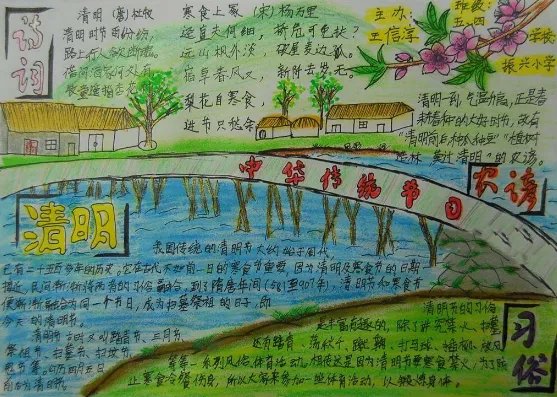 诗词
清明 (唐) 杜牧
清明时节雨纷纷,
路上行人欲断魂。
借问酒家何处有
牧童遥指杏花
寒食上冢 (宋) 杨万里
迳直夫何细, 桥危可免扶?
远山枫外淡 破屋麦边孤。
宿草春风又, 新阡去岁无。
梨花自寒食,
进节只愁余
主办:
班级:
五、四
学校
振兴小学
清明一到,气温升高,正是春
耕春种的大好时节,故有
"清明前后,种瓜种豆" "植树
造林,莫过清明"的农谚。
农谚
中华传统节日
清明
我国传统的清明节大约始于周代,
已有二千五百多年的历史。
接近,民间渐渐将两者的习俗融合,到了隋唐年间(581至907年),清明节和寒食节
便渐渐融合为同一个节日,成为扫墓祭祖的日子,即
今天的清明节。
清明节的习俗
是丰富有趣的,除了讲究禁火、扫墓
还有踏青、荡秋千、蹴鞠、打马球、插柳
等等一系列风俗体育活动。相传这是因为清明节要寒食禁火,为了防
止寒食冷餐伤身,所以大家来参加一些体育活动,以锻炼身体。
习俗